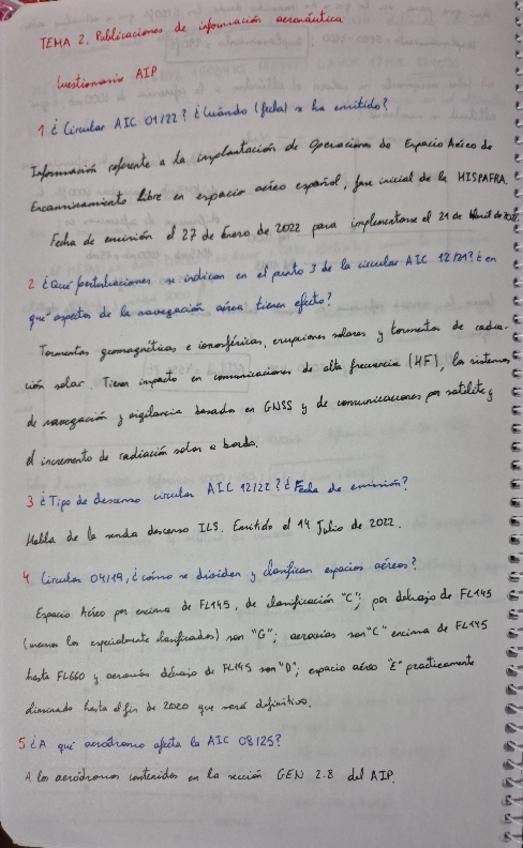 TEMA 2. Publicaciones de información aeronáutica
Cuestionario AIP
1 ¿Circular AIC 01/22? ¿Cuándo (fecha) se ha emitido?
Información referente a la implantación de Operaciones de Espacio Aéreo de
Encaminamiento Libre en espacio aéreo español, fase inicial de la HISPAFRA.
Fecha de emisión el 27 de Enero de 2022 para implementarse el 21 de Abril de 2022.
2 ¿Qué perturbaciones se indican en el punto 3 de la circular AIC 12/21? ¿en
qué aspectos de la navegación aérea tienen efecto?
Tormentas geomagnéticas e ionosféricas, erupciones solares y tormentas de radia-
ción solar. Tienen impacto en comunicaciones de alta frecuencia (HF), los sistemas
de navegación y vigilancia basados en GNSS y de comunicaciones por satélite y
el incremento de radiación solar a bordo.
3 ¿Tipo de descenso circular AIC 12/22? ¿Fecha de emisión?
Habla de la senda descenso ILS. Emitido el 14 Julio de 2022.
4 Circular 04/19, ¿cómo se dividen y clasifican espacios aéreos?
Espacio Aéreo por encima de FL145, de clasificación "C"; por debajo de FL145
(menos los especialmente clasificados) son "G"; aerovías son "C" encima de FL145
hasta FL660 y aerovías debajo de FL145 son "D"; espacio aéreo "E" prácticamente
eliminado hasta el fin de 2020 que será definitivo.
5 ¿A qué aeródromo afecta la AIC 08/25?
A los aeródromos contenidos en la sección GEN 2.8 del AIP.